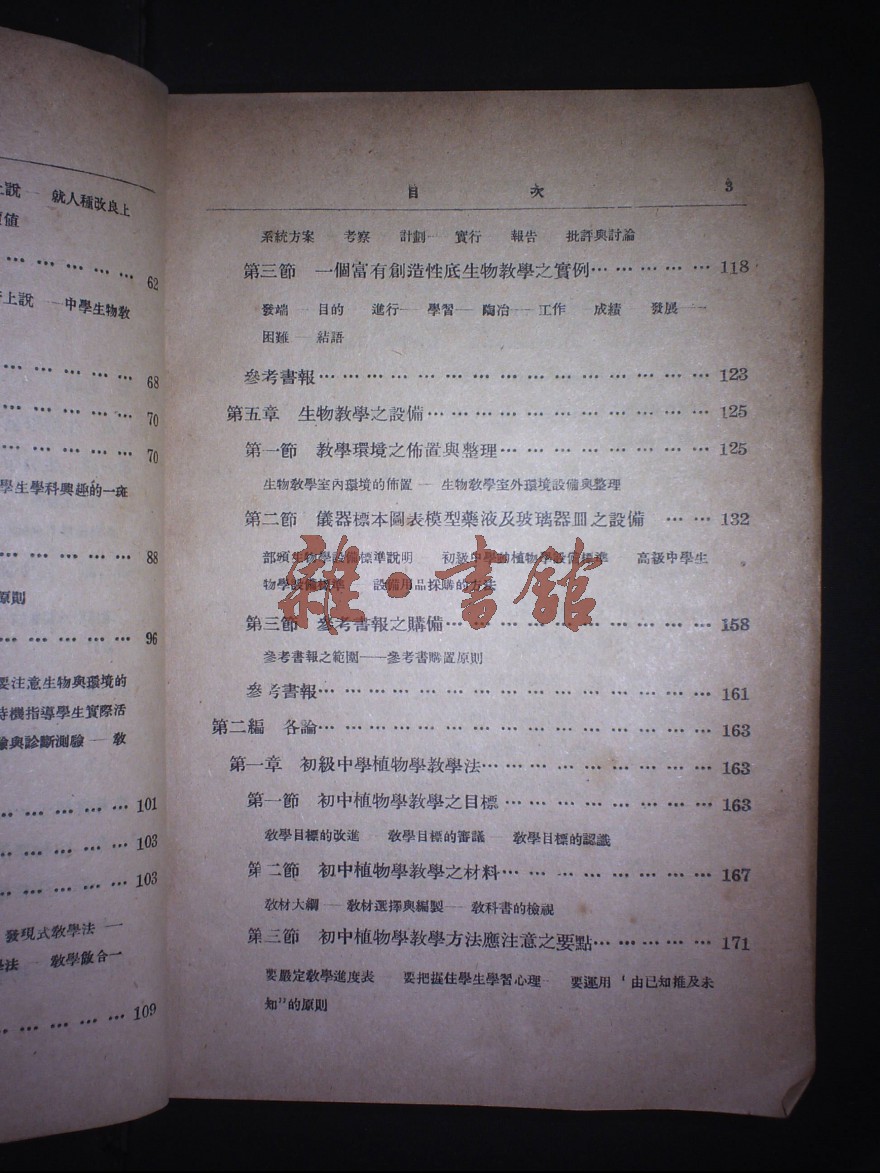 上說── 就人種改良上
值
… … … … … … 62
上說 ──中學生物教
… … … … … … 68
… … … … … … 70
… … … … … … 70
學生學科興趣的一斑
… … … … … … 88
原則
… … … … … … 96
要注意生物與環境的
待機指導學生實際活
驗與診斷測驗── 教
… … … … … … 101
… … … … … … 103
… … … … … … 103
發現式教學法 ─
學法 ── 教學做合一
… … … … … … 109
目 次 3
系統方案── 考察 計劃── 實行 報告 批評與討論
第三節 一個富有創造性底生物教學之實例… … … … … 118
發端──目的 進行──學習──陶冶──工作 成績 發展──
困難──結語
參考書報… … … … … … … … … … … … … … 123
第五章 生物教學之設備… … … … … … … … … … … 125
第一節 教學環境之佈置與整理… … … … … … … … 125
生物教學室內環境的佈置──生物教學室外環境設備與整理
第二節 儀器標本圖表模型藥液及玻璃器皿之設備 … … 132
部頒生物學設備標準說明 初級中學動植物學設備標準 高級中學生
物學設備標準 設備用品採購的方法
雜·書館
第三節 參考書報之購備… … … … … … … … … … 158
參考書報之範圍──參考書購置原則
參考書報… … … … … … … … … … … … … … 161
第二編 各論… … … … … … … … … … … … … … 163
第一章 初級中學植物學教學法… … … … … … … … 163
第一節 初中植物學教學之目標… … … … … … … … 163
教學目標的改進──教學目標的審議──教學目標的認識
第二節 初中植物學教學之材料… … … … … … … … 167
教材大綱──教材選擇與編製──教科書的檢視
第三節 初中植物學教學方法應注意之要點… … … … … 171
要嚴定教學進度表──要把握住學生學習心理── 要運用‘由已知推及未
知”的原則